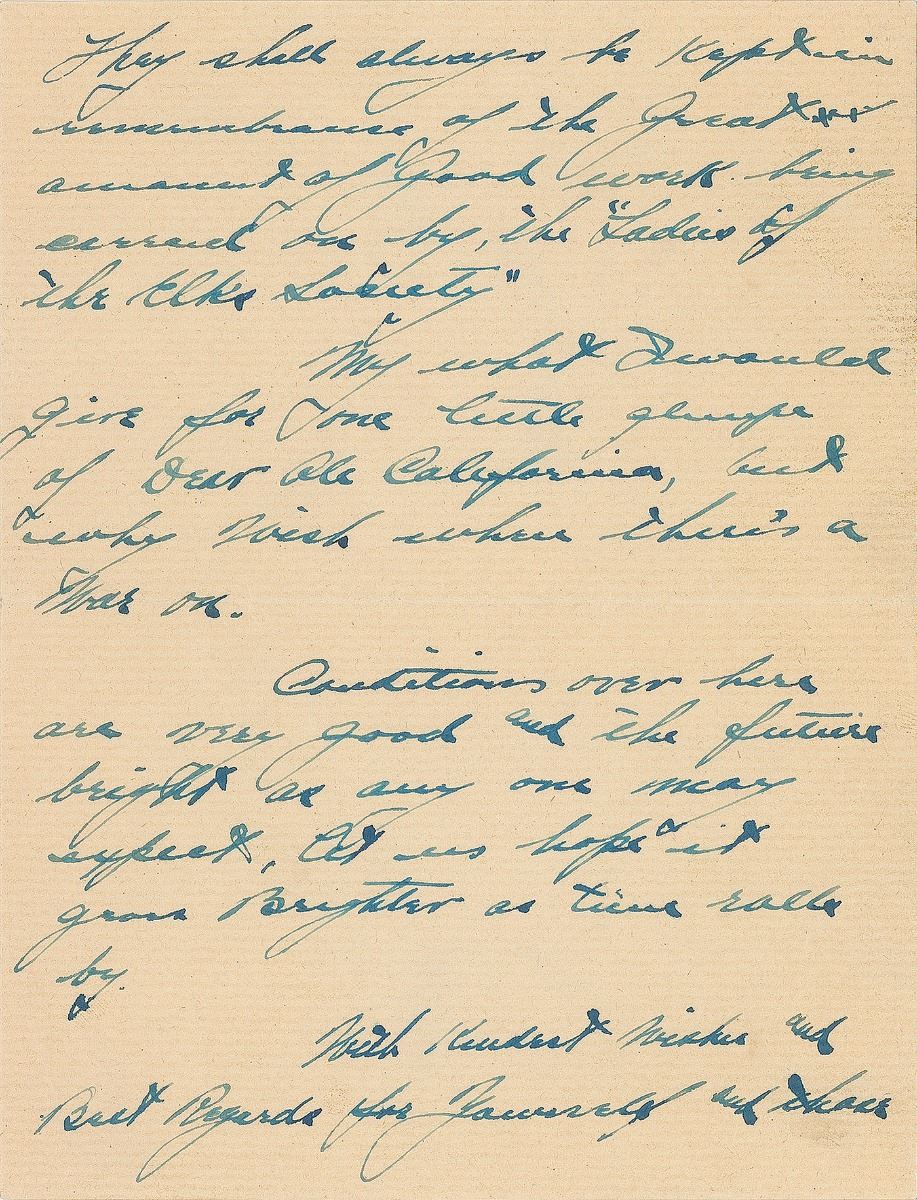 They shall always be kept in
remembrance of the Great
amount of Good work being
carried on by, the "Ladies of
the Elks Society"
My what I would
Give for one little glimpse
of Dear Ole California, but
why Wish when there's a
War on.
Conditions over here
are very good and the future
bright as any one may
expect, Let us hope it
grows Brighter as time rolls
by.
With Kindest Wishes and
Best Regards for Yourself and those